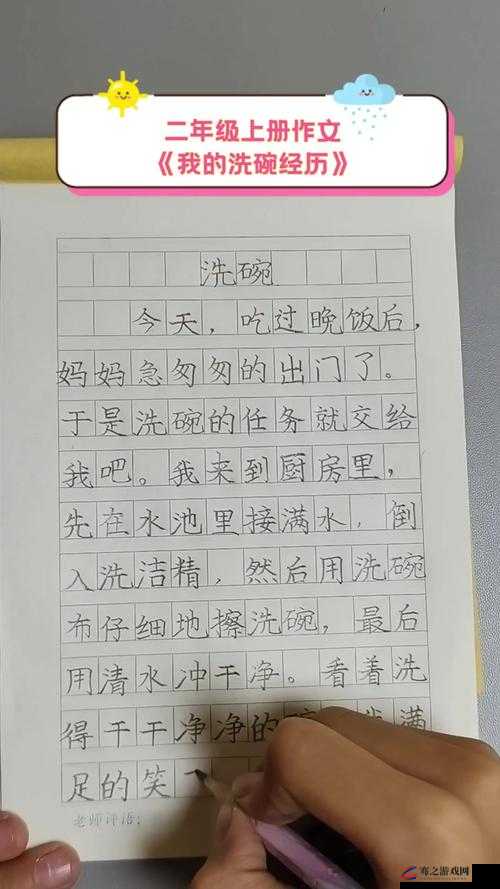 二年级上册作文
《我的洗碗经历》
洗碗
今天，吃过晚饭后，
妈妈急匆匆的出门了。
于是洗碗的任务就交给
我吧。我来到厨房里，
先在水池里接满水，倒
入洗洁精，然后用洗碗
布仔细地擦洗碗，最后
用清水冲干净。看着洗
得干干净净的 满
足的笑
老师评语：
骞之游戏网